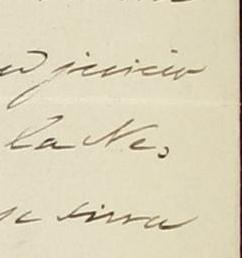 juicio
la Ne-
se sirva